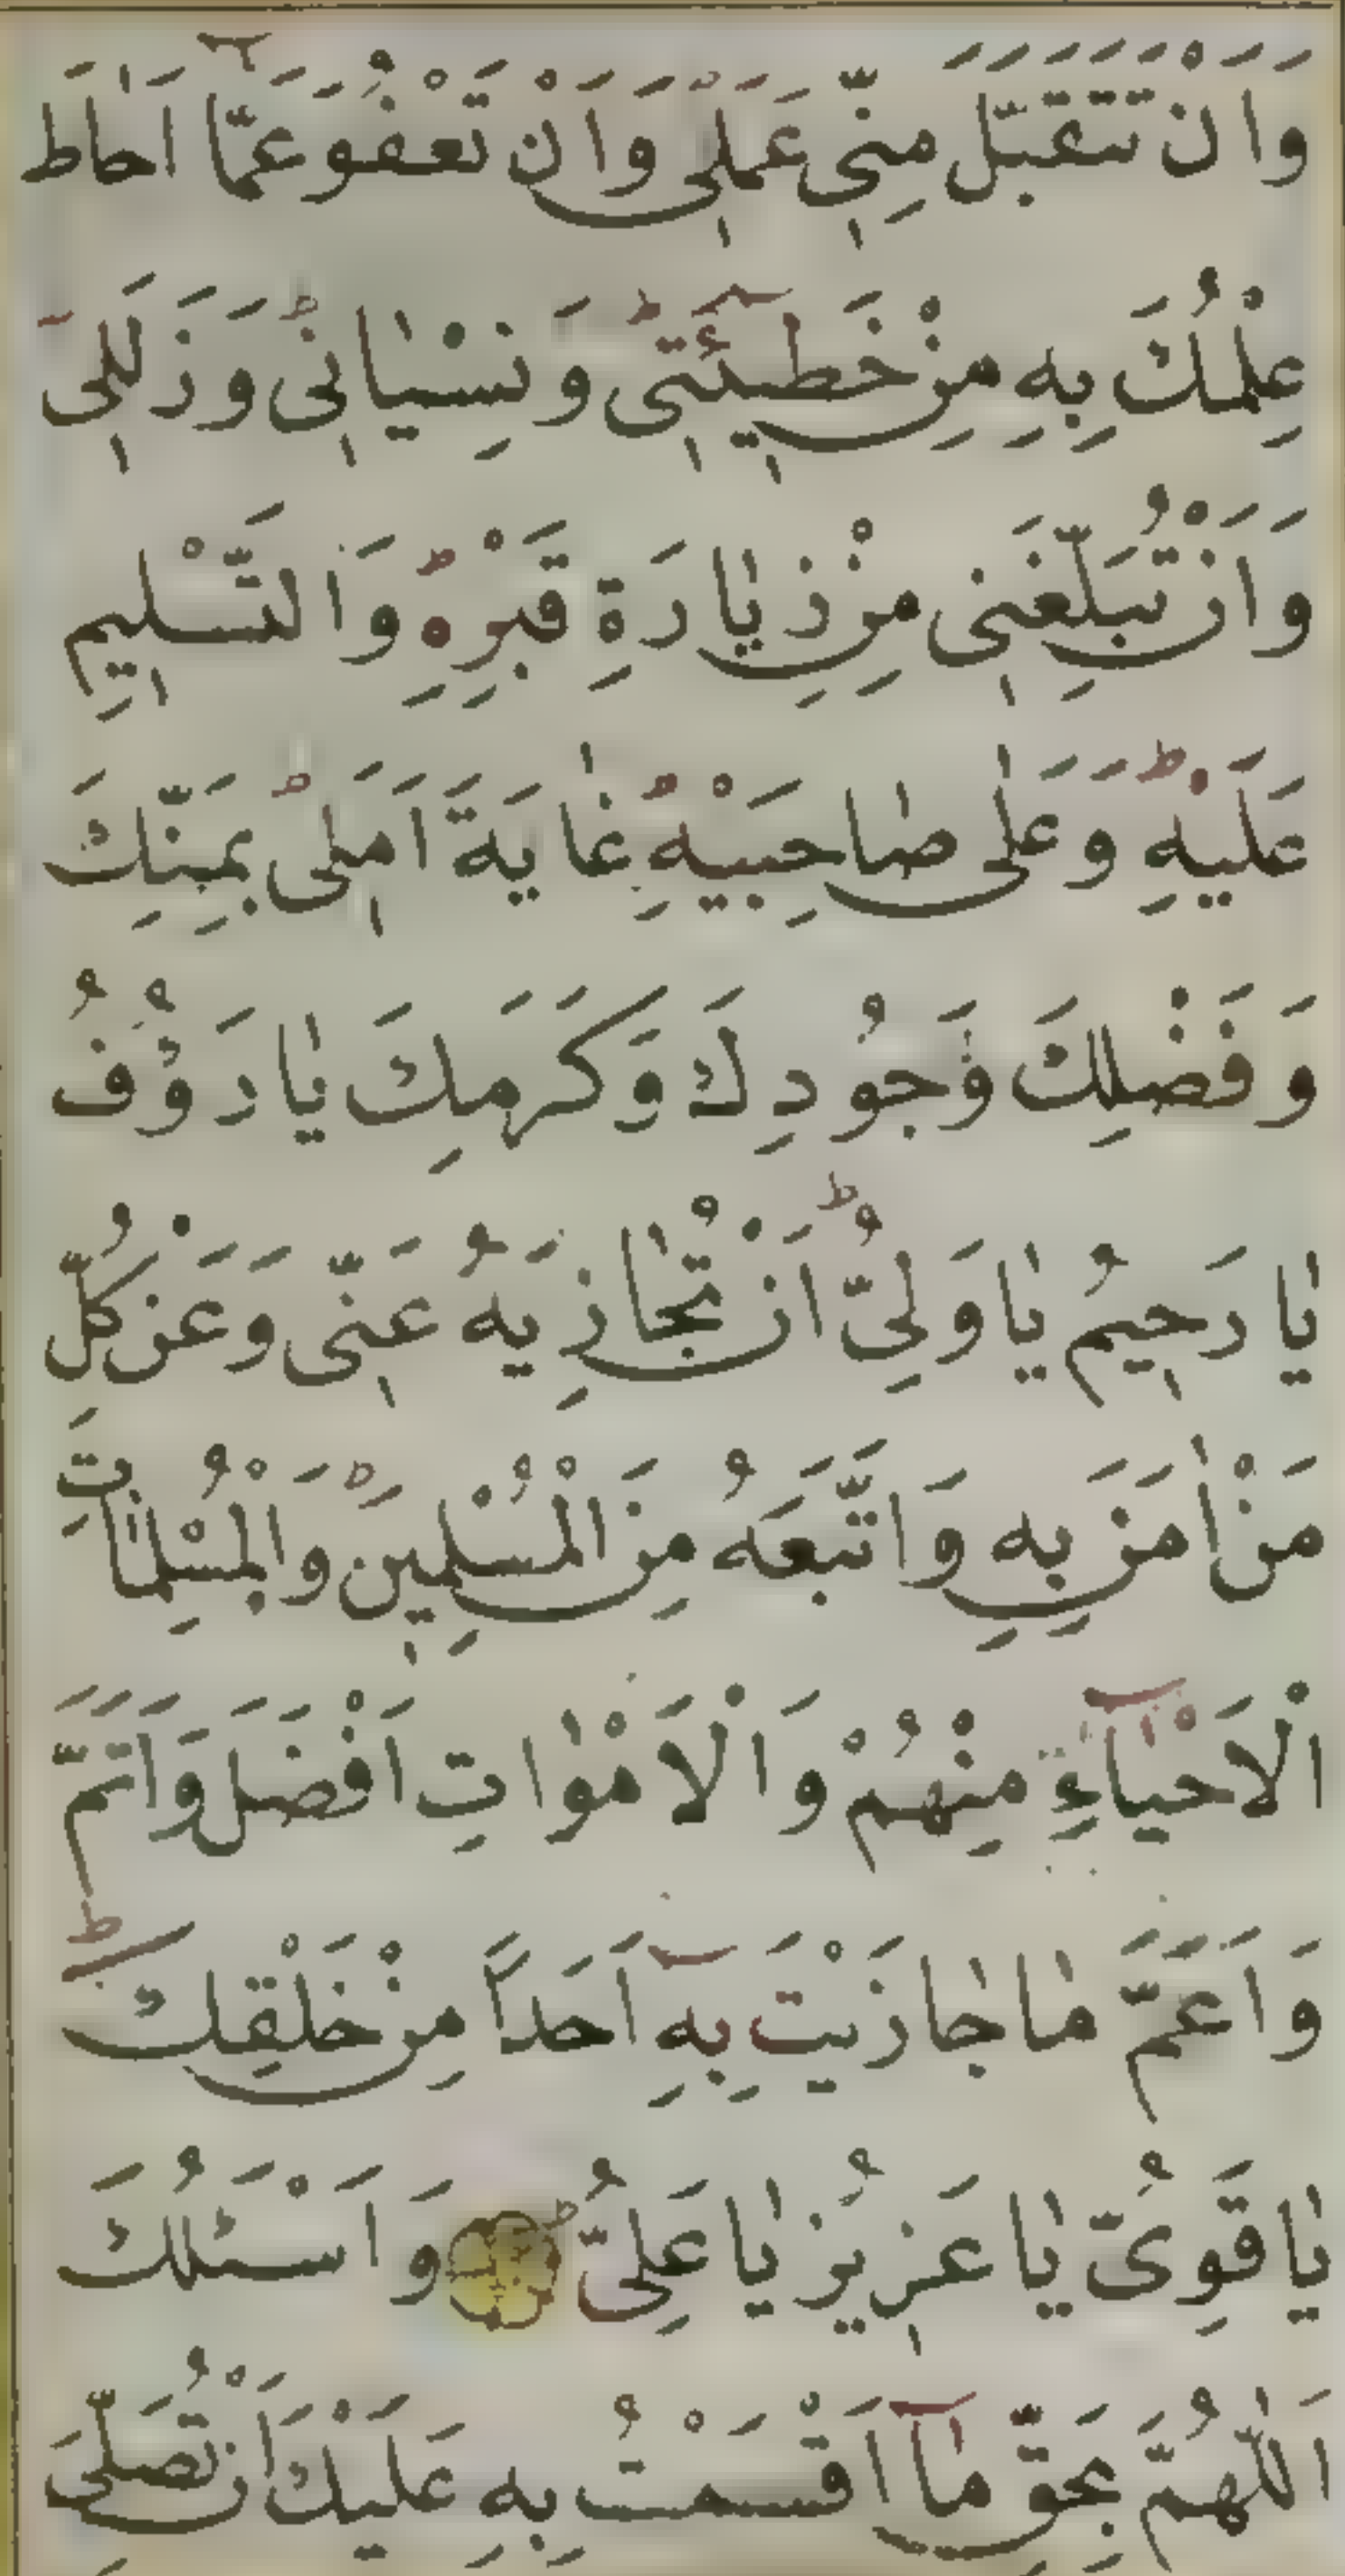 وَاَنْ تَتَقَبَّلَ مِنِّي عَمَلِي وَاَنْ تَعْفُوَ عَمَّا اَحَاطَ
عِلْمُكَ بِهِ مِنْ خَطِيئَتِي وَنِسْيَانِي وَزَلَلِي
وَاَنْ تُبَلِّغَنِي مِنْ زِيَارَةِ قَبْرِهِ وَالتَّسْلِيمِ
عَلَيْهِ وَعَلٰى صَاحِبَيْهِ غَايَةَ اَمَلِي بِمَنِّكَ
وَفَضْلِكَ وَجُودِكَ وَكَرَمِكَ يَا رَؤُفُ
يَا رَحِيمُ يَا وَلِيُّ اَنْ تُجَازِيَهُ عَنِّي وَعَنْ كُلِّ
مَنْ اٰمَنَ بِهِ وَاتَّبَعَهُ مِنَ الْمُسْلِمِينَ وَالْمُسْلِمَاتِ
الْاَحْيَاءِ مِنْهُمْ وَالْاَمْوَاتِ اَفْضَلَ وَاَتَمَّ
وَاَعَمَّ مَا جَازَيْتَ بِهِ اَحَداً مِنْ خَلْقِكَ
يَا قَوِيُّ يَا عَزِيزُ يَا عَلِيُّ وَاَسْئَلُكَ
اَللّٰهُمَّ بِحَقِّ مَا اَقْسَمْتُ بِهِ عَلَيْكَ اَنْ تُصَلِّيَ